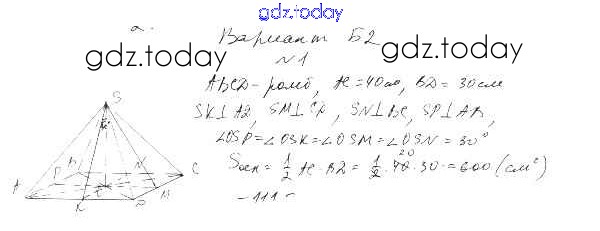 gdz.today
Вариант Б2
gdz.today gdz.today
N1
ABCD - ромб, AC = 40 см, BD = 30 см
SK⊥AD, SM⊥CD, SN⊥BC, SP⊥AB,
∠OSP = ∠OSK = ∠OSM = ∠OSN = 30°
Sосн = 1/2 AC · BD = 1/2 · 40 · 30 = 600 (см²)
20
- 111 -
S
A B C D K M N P